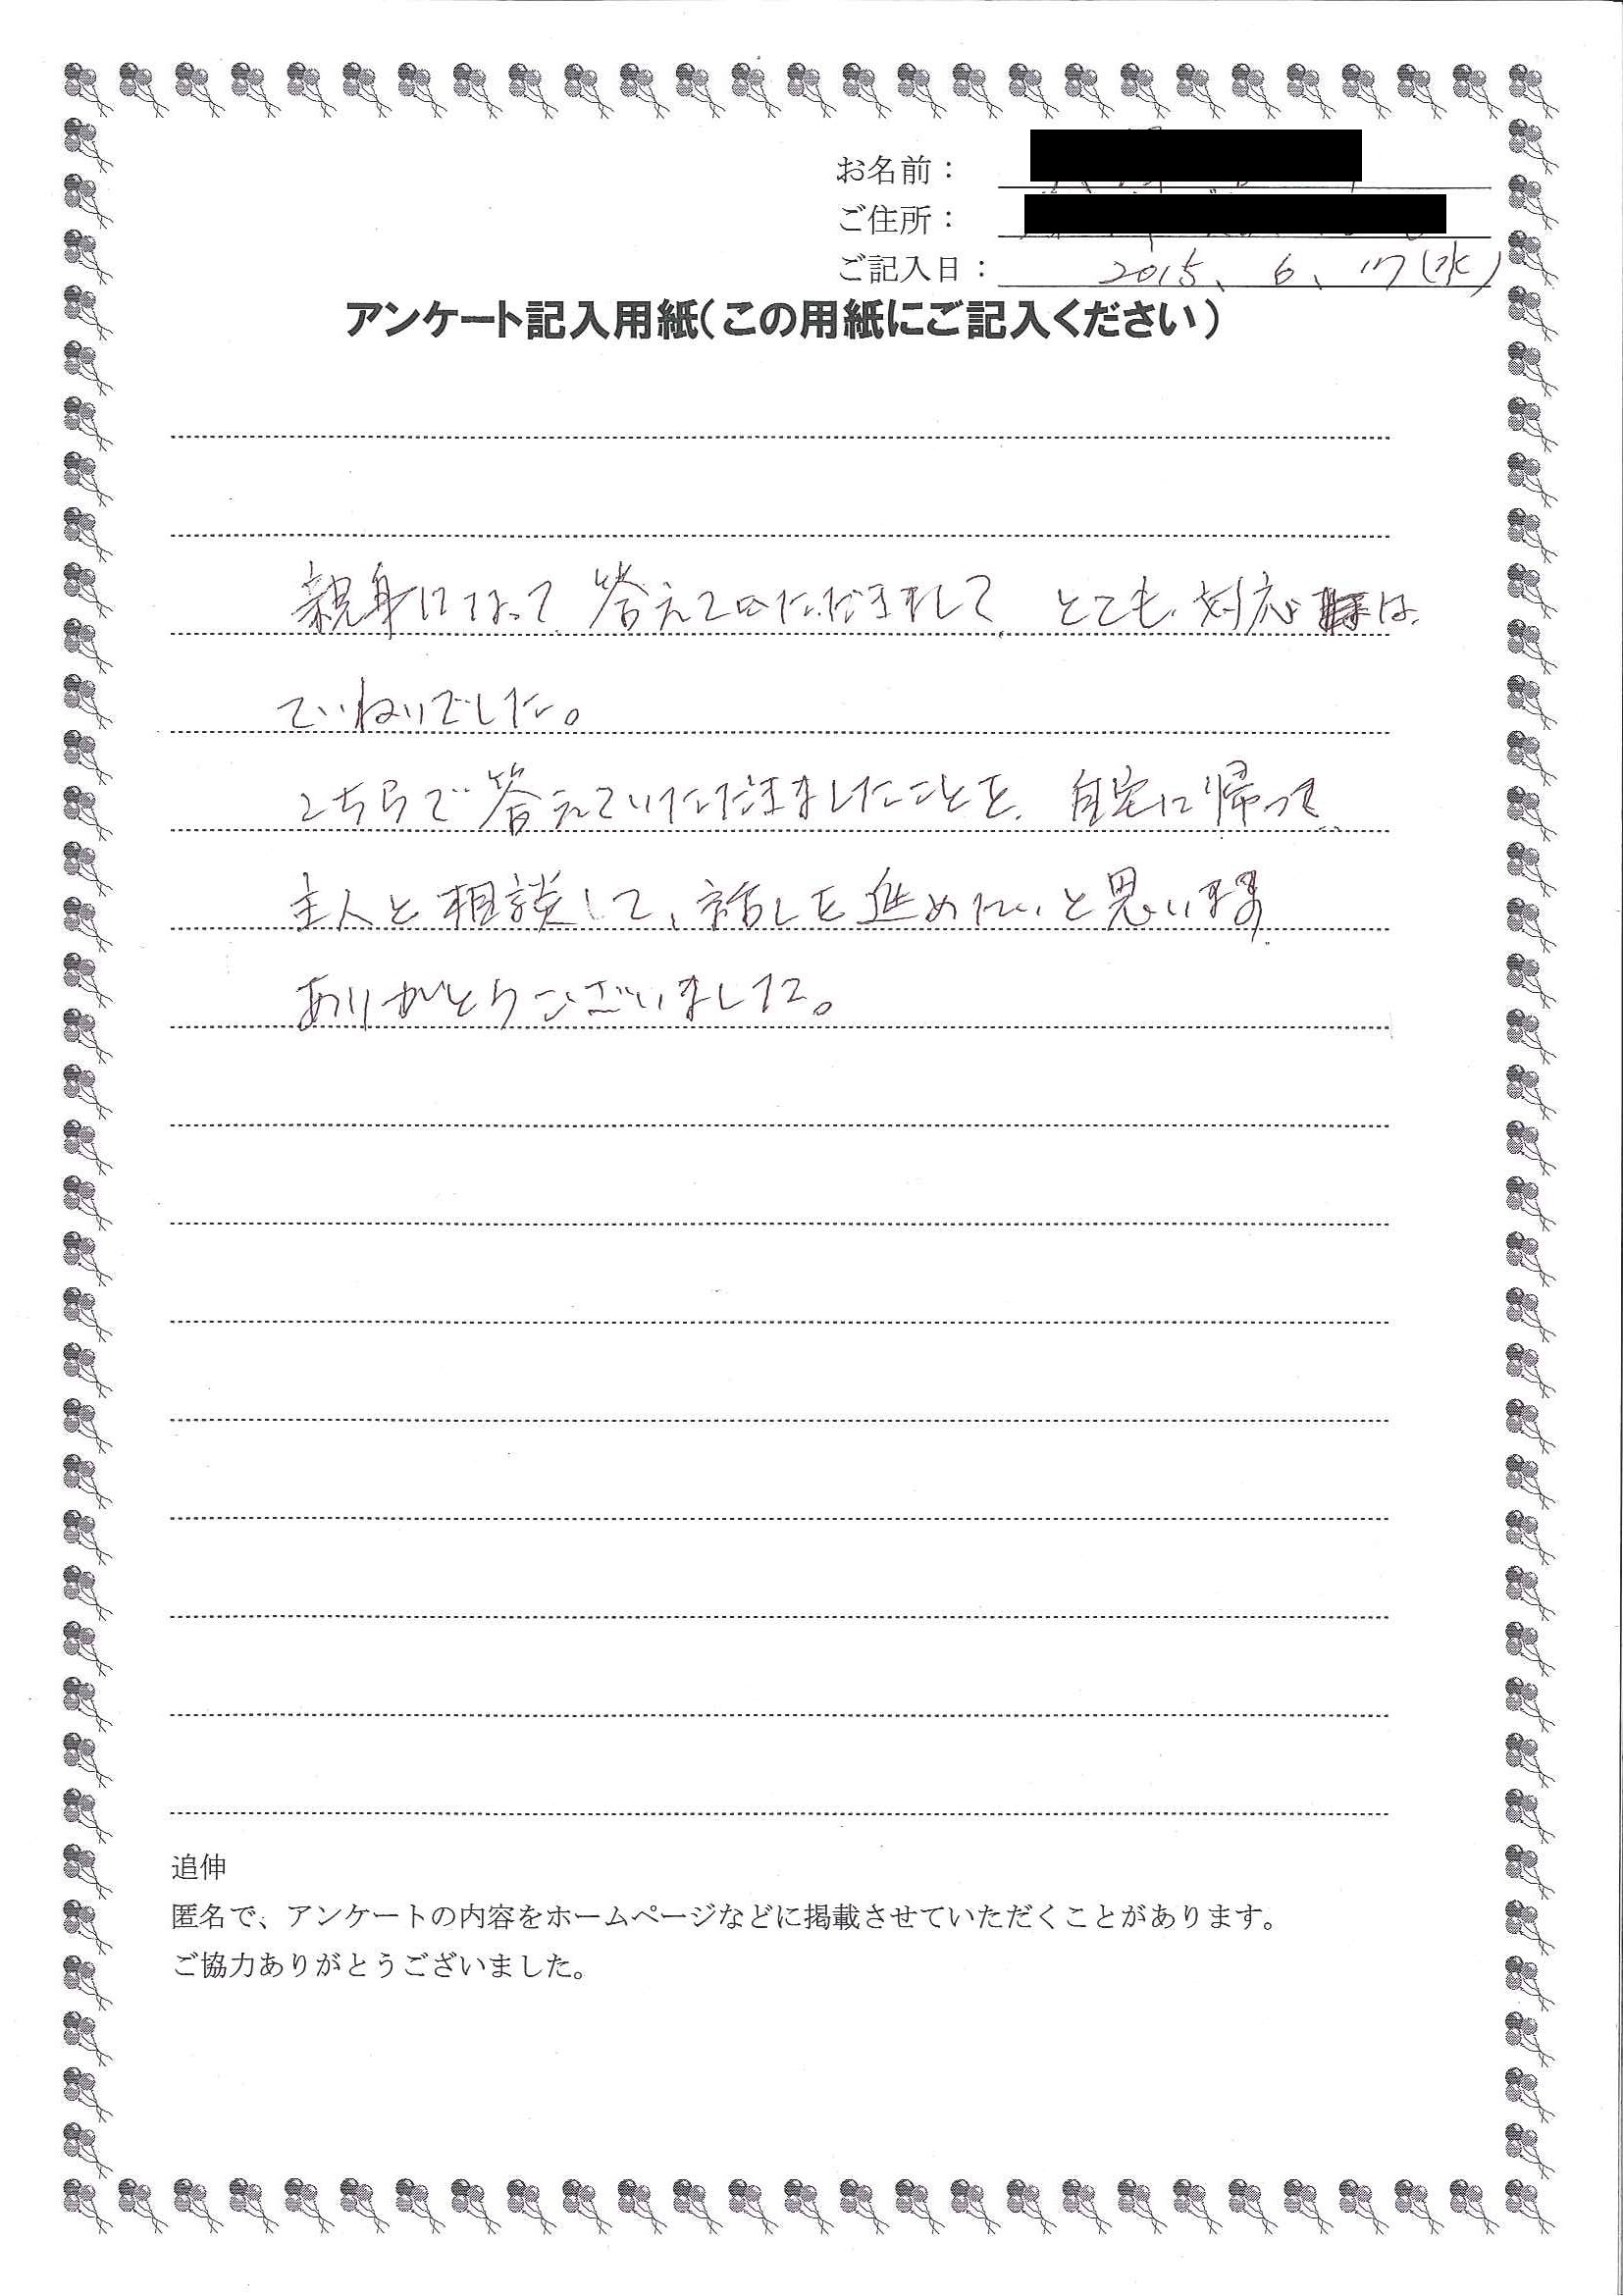 お名前：
ご住所：
ご記入日： 2015、6、17(水)
アンケート記入用紙（この用紙にご記入ください）
親身になって 答えていただきまして とても 対応は
ていねいでした。
こちらで答えていただきましたことを、自宅に帰って
主人と相談して、話しを進めたいと思います
ありがとうございました。
追伸
匿名で、アンケートの内容をホームページなどに掲載させていただくことがあります。
ご協力ありがとうございました。